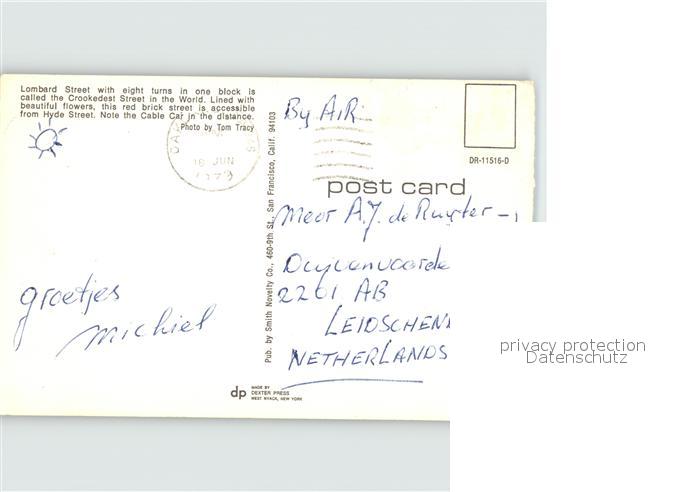 Lombard Street with eight turns in one block is
called the Crookedest Street in the World. Lined with
beautiful flowers, this red brick street is accessible
from Hyde Street. Note the Cable Car in the distance.
Photo by Tom Tracy
18 JUN
groetjes
michiel
Pub. by Smith Novelty Co., 460-9th St., San Francisco, Calif. 94103
dp
MADE BY
DEXTER PRESS
WEST NYACK, NEW YORK
By AIR
DR-11516-D
post card
A.J. de Ruyter -
2261 AB
NETHERLANDS
privacy protection
Datenschutz